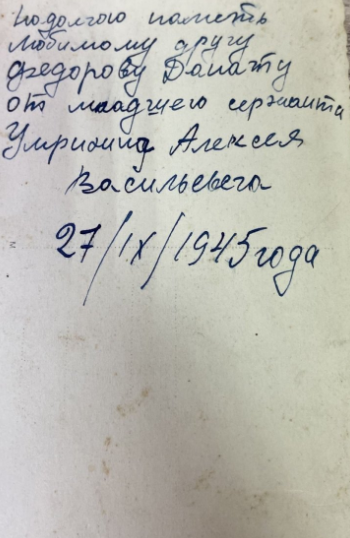 на долгою память
любимому другу
Федорову Данату
от младшего сержанта
Умрихина Алексея
Васильевега
27/IX/1945 года